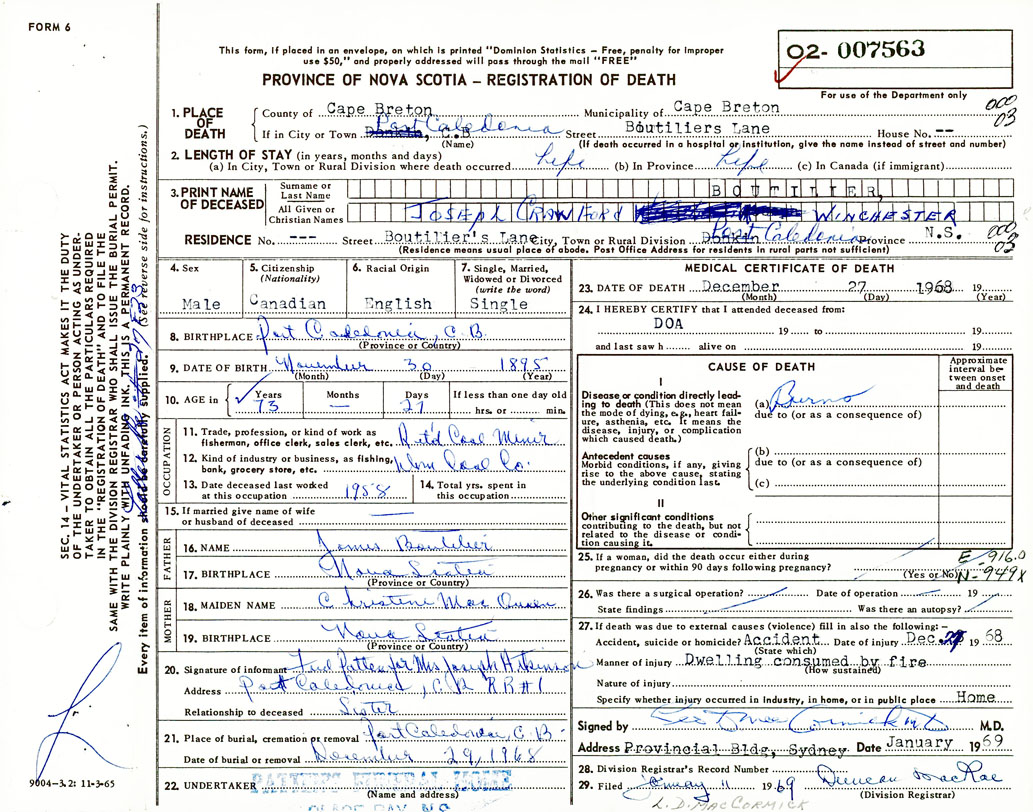 FORM 6
This form, if placed in an envelope, on which is printed "Dominion Statistics – Free, penalty for improper
use $50," and properly addressed will pass through the mail "FREE"
PROVINCE OF NOVA SCOTIA – REGISTRATION OF DEATH
02- 007563
For use of the Department only
000
03
1. PLACE OF DEATH
County of Cape Breton Municipality of Cape Breton
If in City or Town Port Caledonia C.B Street Boutiliers Lane House No. --
(Name) (If death occurred in a hospital or institution, give the name instead of street and number)
2. LENGTH OF STAY (in years, months and days)
(a) In City, Town or Rural Division where death occurred life (b) In Province life (c) In Canada (if immigrant)
3. PRINT NAME OF DECEASED
Surname or Last Name BOUTILIER,
All Given or Christian Names JOSEPH CRAWFORD WINCHESTER
RESIDENCE No. --- Street Boutilier's Lane City, Town or Rural Division Port Caledonia Province N.S.
000
03
(Residence means usual place of abode. Post Office Address for residents in rural parts not sufficient)
4. Sex
Male
5. Citizenship (Nationality)
Canadian
6. Racial Origin
English
7. Single, Married, Widowed or Divorced (write the word)
Single
8. BIRTHPLACE Port Caledonia, C.B.
(Province or Country)
9. DATE OF BIRTH November 30 1895
(Month) (Day) (Year)
10. AGE in Years 73 Months — Days 27 If less than one day old
hrs. or min.
OCCUPATION
11. Trade, profession, or kind of work as
fisherman, office clerk, sales clerk, etc. Ret'd Coal Miner
12. Kind of industry or business, as fishing,
bank, grocery store, etc. Dom Coal Co.
13. Date deceased last worked
at this occupation 1958
14. Total yrs. spent in
this occupation
15. If married give name of wife
or husband of deceased —
FATHER
16. NAME James Boutilier
17. BIRTHPLACE Nova Scotia
(Province or Country)
MOTHER
18. MAIDEN NAME Christine Mac Queen
19. BIRTHPLACE Nova Scotia
(Province or Country)
20. Signature of informant Fred Patten for Mrs Joseph Atkinson
Address Port Caledonia, C.B RR#1
Relationship to deceased Sister
21. Place of burial, cremation or removal Port Caledonia, C.B.
Date of burial or removal December 29, 1968
22. UNDERTAKER PATTEN FUNERAL HOME
(Name and address)
GLACE BAY, N.S.
MEDICAL CERTIFICATE OF DEATH
23. DATE OF DEATH December 27 1968 19
(Month) (Day) (Year)
24. I HEREBY CERTIFY that I attended deceased from:
DOA 19 to 19
and last saw h alive on 19
CAUSE OF DEATH
Approximate interval between onset and death
I
Disease or condition directly leading to death (This does not mean
the mode of dying, e.g., heart failure, asthenia, etc. It means the
disease, injury, or complication
which caused death.)
(a) Burns
due to (or as a consequence of)
Antecedent causes
Morbid conditions, if any, giving
rise to the above cause, stating
the underlying condition last.
(b)
due to (or as a consequence of)
(c)
II
Other significant conditions
contributing to the death, but not
related to the disease or condition causing it.
25. If a woman, did the death occur either during
pregnancy or within 90 days following pregnancy?
(Yes or No)
E-916.0
N-949X
26. Was there a surgical operation? Date of operation 19
State findings Was there an autopsy?
27. If death was due to external causes (violence) fill in also the following:–
Accident, suicide or homicide? Accident Date of injury Dec. 27 19 68
(State which)
Manner of injury Dwelling consumed by fire
(How sustained)
Nature of injury
Specify whether injury occurred in industry, in home, or in public place Home
Signed by M.D.
Address Provincial Bldg, Sydney Date January 1969
28. Division Registrar's Record Number
29. Filed January 11 1969 Duncan MacRae
(Division Registrar)
L.D. MACCORMICK
SEC. 14 – VITAL STATISTICS ACT MAKES IT THE DUTY
OF THE UNDERTAKER OR PERSON ACTING AS UNDER-
TAKER TO OBTAIN ALL THE PARTICULARS REQUIRED
IN THE "REGISTRATION OF DEATH" AND TO FILE THE
SAME WITH THE DIVISION REGISTRAR WHO SHALL ISSUE THE BURIAL PERMIT.
WRITE PLAINLY WITH UNFADING INK. THIS IS A PERMANENT RECORD.
Every item of information should be carefully supplied. (See reverse side for instructions.)
9004–3.2: 11-3-65